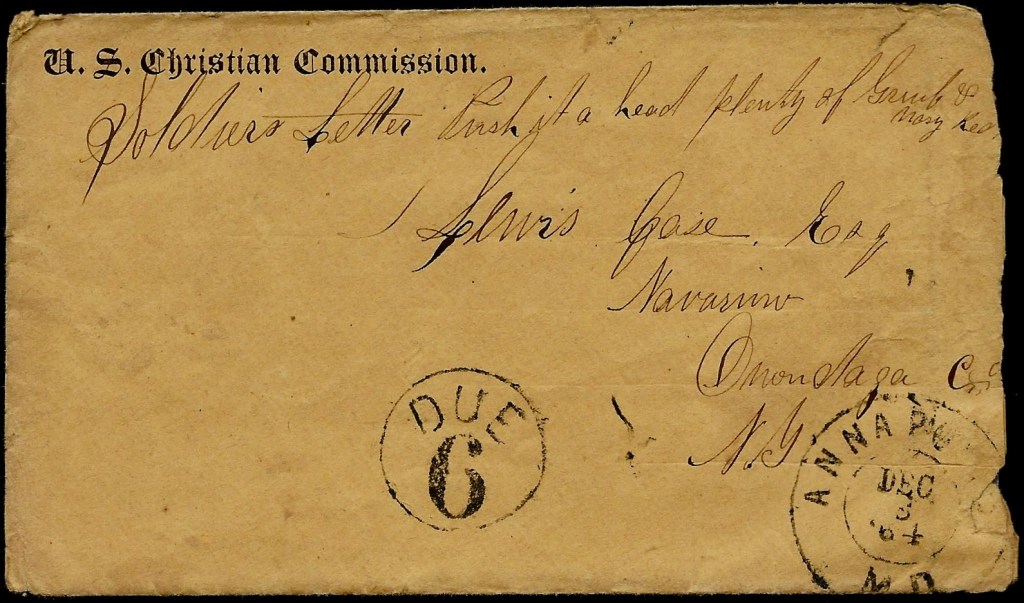 U. S. Christian Commission.
Soldiers Letter Push it a head plenty of Grub &
Lewis Case. Esq
Navarino
Onondaga Co
N.Y
DUE
6
ANNAPO
DEC
3
64
MD